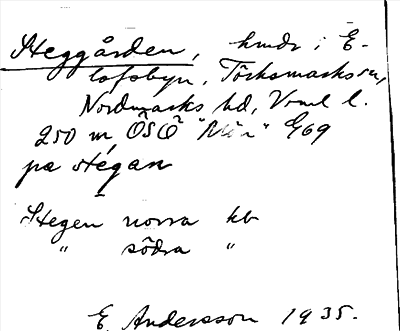 Steggården, hmdr i E-
lofsbyn, Töcksmarks sn,
Nordmarks hd, Vrml l.
250 m ÖSÖ "Män" G69
pa stégan
Stegen norra hb
" södra "
E. Andersson 1935.